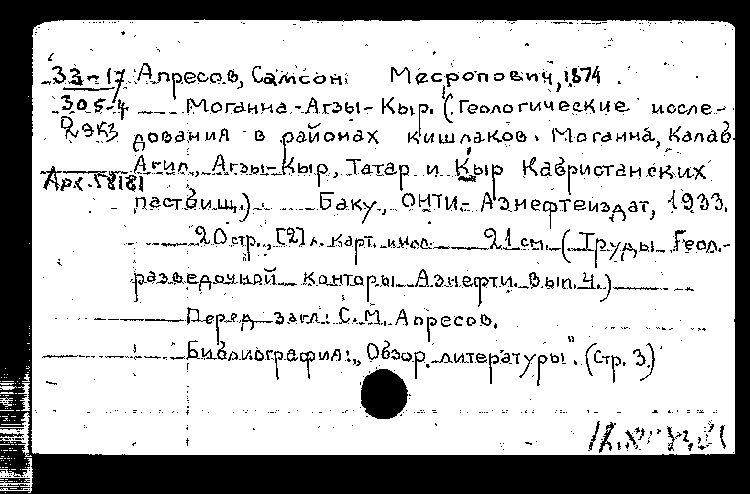 33-17 Апресов, Самсон Месропович, 1874
305-4 Моганна-Агзы-Кыр. (Геологические иссле-
2экз дования в районах кишлаков. Моганна, Калав
Агил, Агзы-Кыр, Татар и Кыр Кабристанских
Арх.58181
пастбищ.) Баку, ОНТИ-Азнефтеиздат, 1933.
20стр., [2] л. карт. илл. 21 см. (Труды Геол.-
разведочной конторы Азнефти. Вып. 4.)
Перед загл: С.М. Апресов.
Библиография: „Обзор литературы". (Стр. 3)